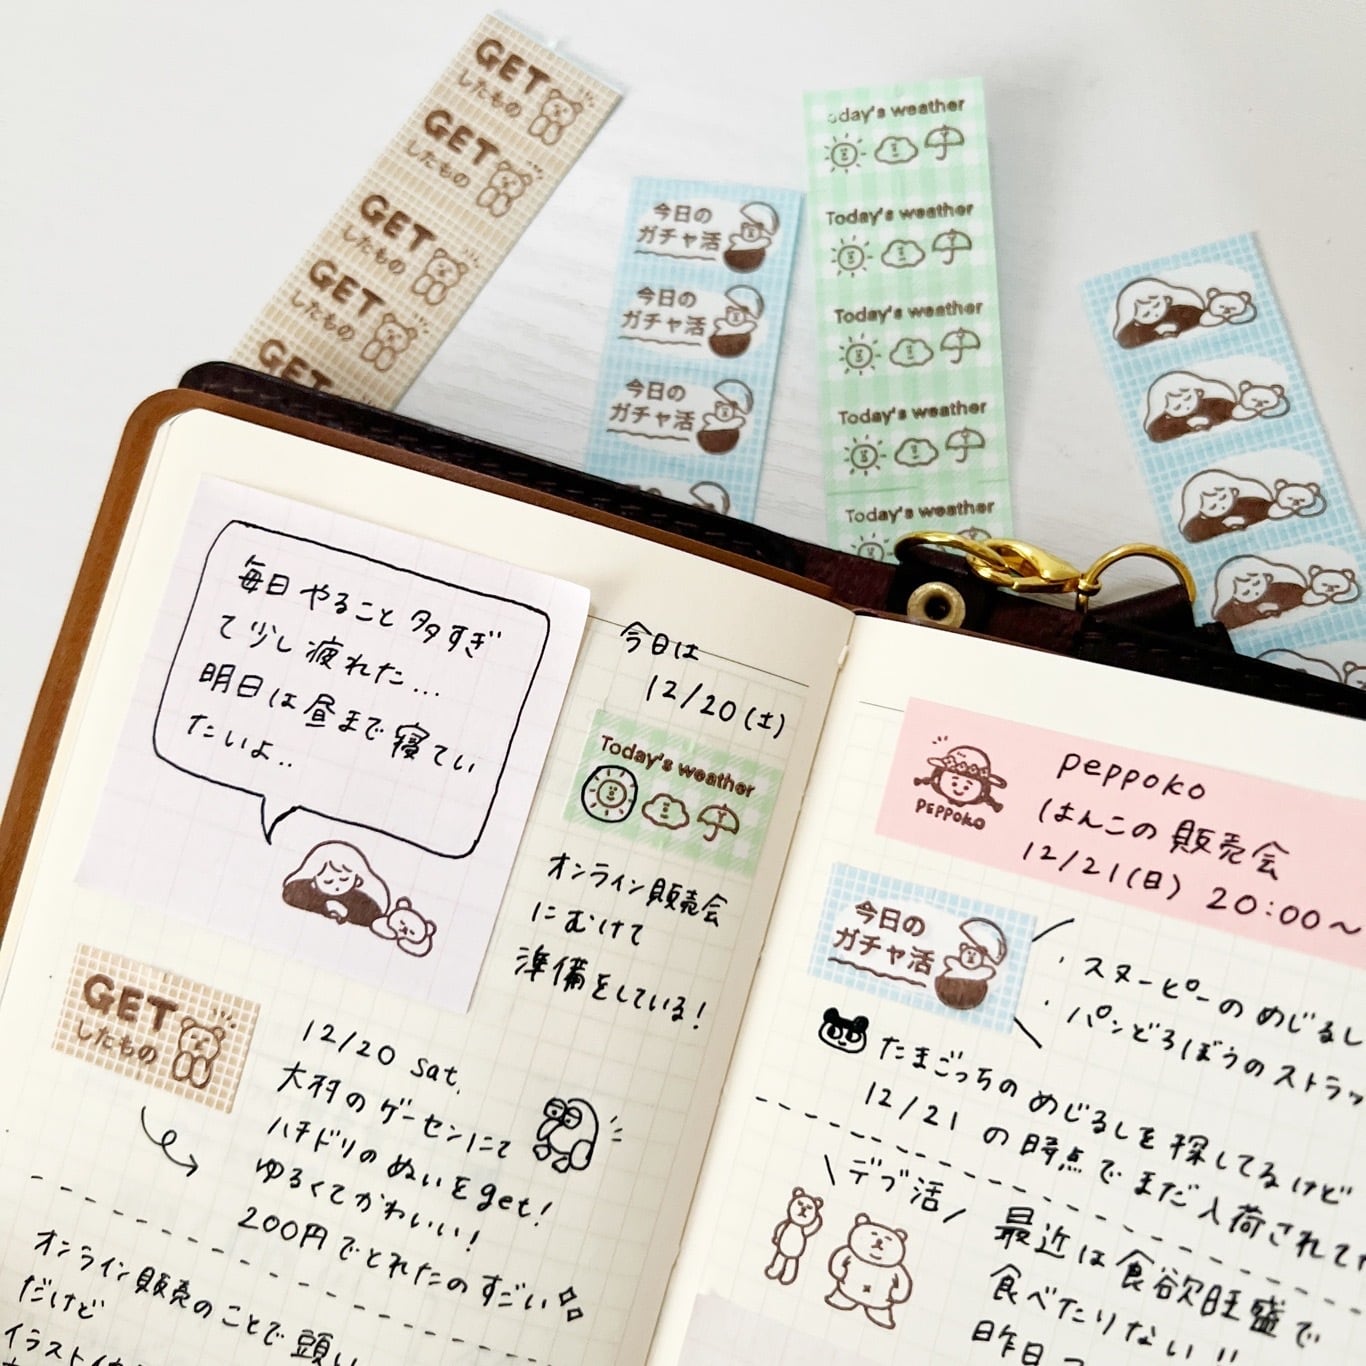 GET
したもの
GET
したもの
GET
したもの
GET
したもの
GET
今日の
ガチャ活
今日の
ガチャ活
今日の
ガチャ活
oday's weather
Today's weather
Today's weather
Today's weather
Today's weather
毎日やること多すぎ
て少し疲れた...
明日は昼まで寝てい
たいよ..
今日は
12/20(土)
Today's weather
オンライン販売会
にむけて
準備をしている!
GET
したもの
12/20 sat.
大村のゲーセンにて
ハチドリのぬいをget!
ゆるくてかわいい!
200円でとれたのすごい
オンライン販売のことで頭い
だけど
イラスト
PEPPOKO
peppoko
はんこの販売会
12/21(日) 20:00〜
今日の
ガチャ活
・スヌーピーのめじるし
・パンどろぼうのストラッ
たまごっちのめじるしを探してるけど
12/21の時点でまだ入荷されて
\デブ活/
最近は食欲旺盛で
食べたりない!!
昨日